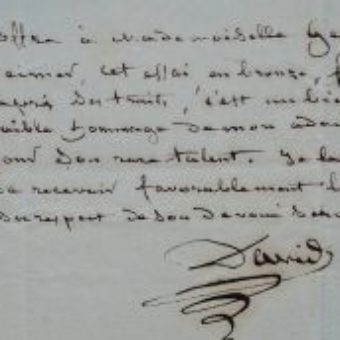 offre à Mademoiselle
cet essai en bronze,
traits, c'est un
faible hommage de mon
pour son rare talent. Je la
recevoir favorablement l
du respect de son dévoué
David